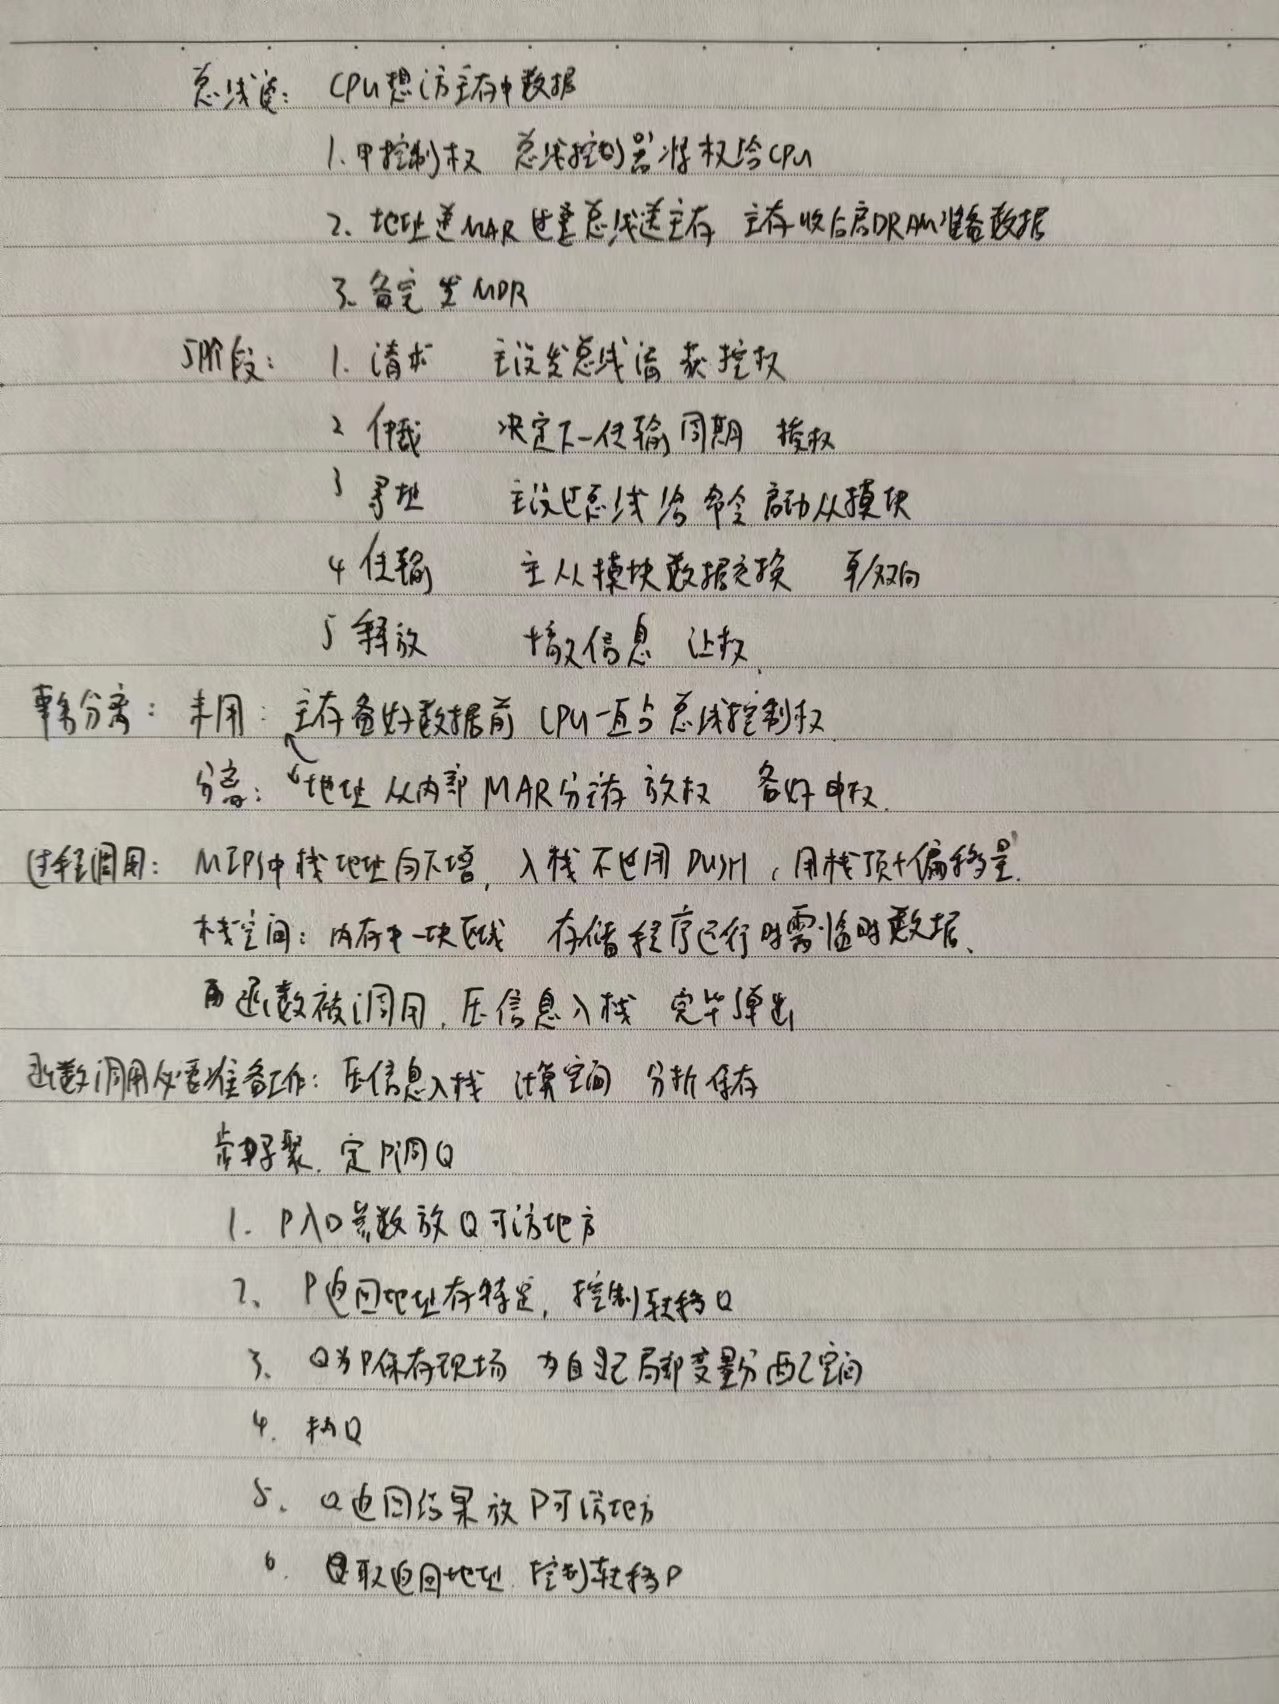 总线 : CPU想访主存中数据
1. 申控制权 总线控制器将权给CPU
2. 地址送MAR 过 总线送主存 主存收后启DRAM准备数据
3. 备完 发MDR
5阶段: 1. 请求 主设发总线请 获控权
2 仲裁 决定下一传输周期 授权
3 寻址 主设过总线给命令启动从模块
4 传输 主从模块数据交换 单/双向
5 释放 撤信息 让权.
事务分离: 未用: 主存备好数据前 CPU一直占总线控制权
分离: 地址从内部MAR 主存 放权 备好申权.
过程调用: MIPS中栈地址向下增, 入栈不 用PUSH, 用栈顶+偏移量.
栈空间: 内存中一块区域 存储程序运行时需临时数据.
函数被调用, 压信息入栈 完毕弹出
函数调用必要准备工作: 压信息入栈 计算空间 分析保存
定 P调Q
1. P入口参数放Q可访地方
2. P返回地址存特定, 控制转移Q
3. Q为P保存现场 为自己局部变量分配空间
4. Q
5. Q返回结果放P可访地方
6. Q取返回地址 控制转移P